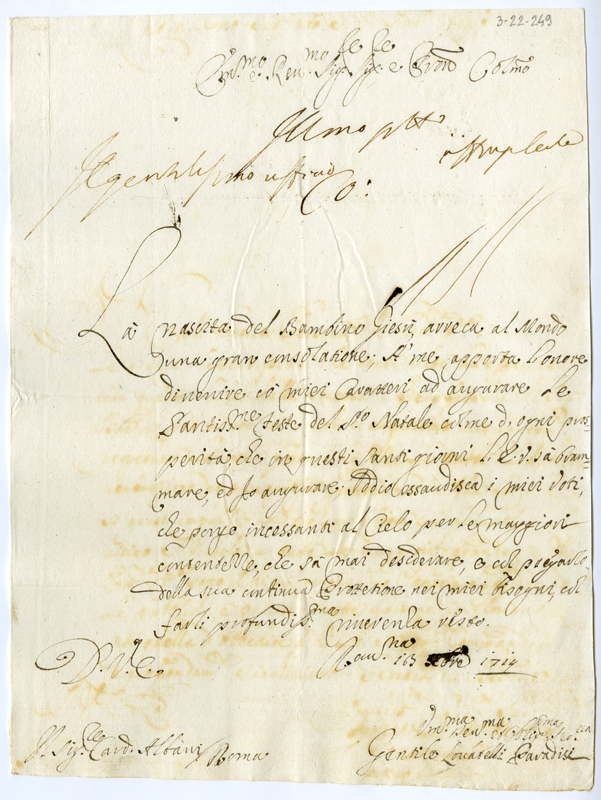 3-22-249
Em.mo e Rev.mo Sig.re Sig.re e Pron Colmo
Ill.mo
Il gentilissimo
La nascita del Bambino Giesù, arreca al Mondo
una gran consolatione; A' me apporta l'onore
di venire cò miei Caratteri ad augurare le
Santiss.me feste del S.to Natale colme d'ogni pros-
perità, che in questi santi giorni l'E.V. sà bram-
mare, ed Jo augurare. Iddio essaudisca i miei Voti,
che porgo incessanti al Cielo per le maggiori
contentezze, che sà mai desiderare, e col pregarlo
della sua continua Protetione nei miei bisogni, col
farli profundiss.ma riverenza resto.
D. V. E.
Rav.na 16 Xbre 1714
S.r Sig.re Card. Albani Roma
Gentile Lovatelli Paradisi